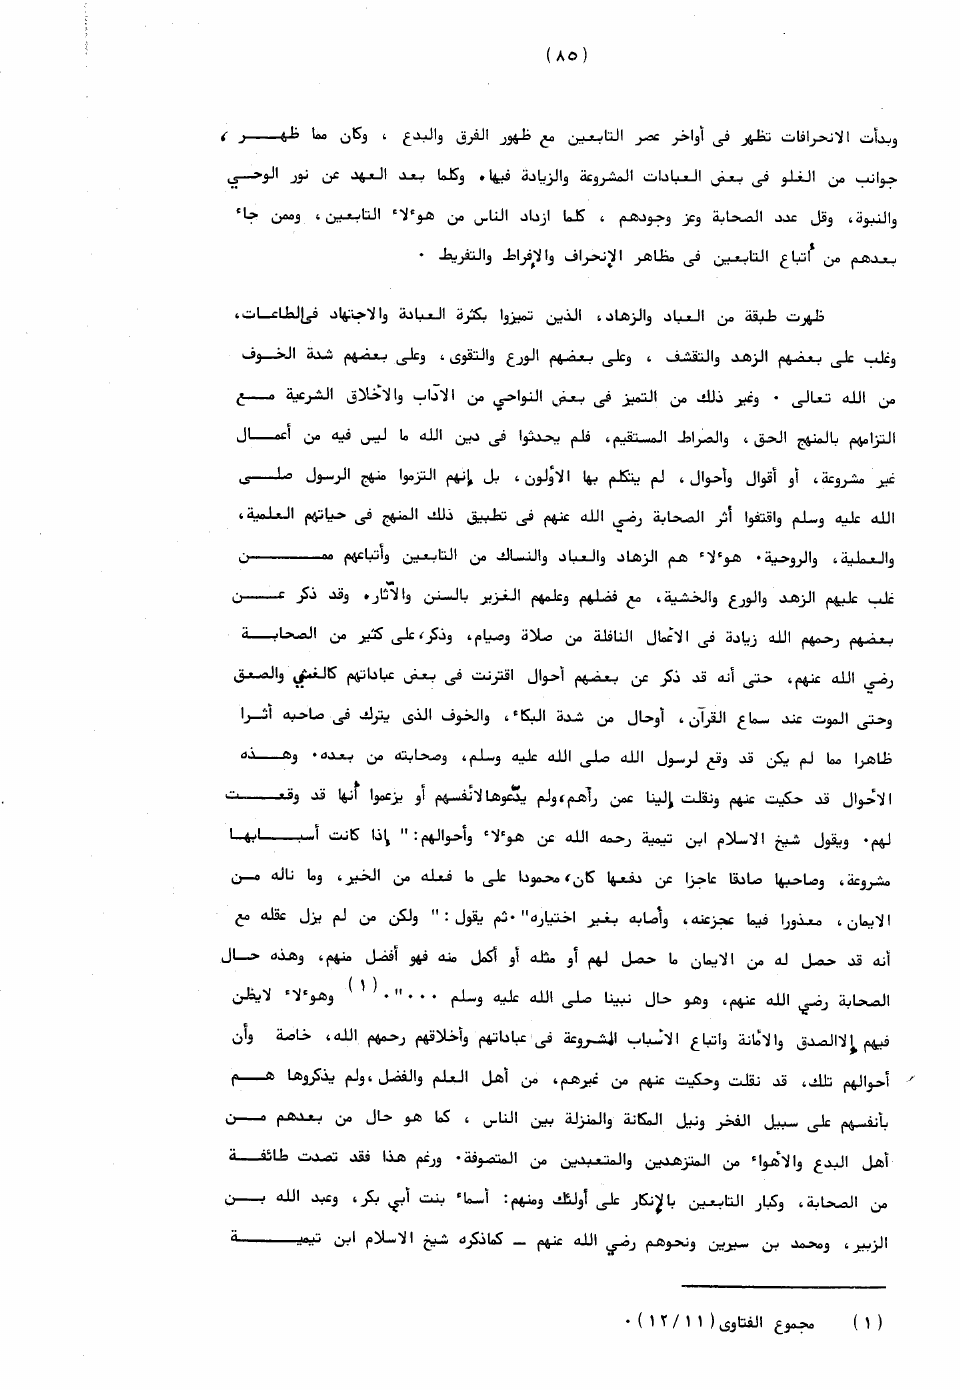 (٨٥)
وبدأت الانحرافات تظهر فى أواخر عصر التابعين مع ظهور الفرق والبدع ، وكان مما ظهر ،
جوانب من الغلو فى بعض العبادات المشروعة والزيادة فيها. وكلما بعد العهد عن نور الوحي
والنبوة، وقل عدد الصحابة وعز وجودهم ، كلما ازداد الناس من هؤلاء التابعين، وممن جاء
بعدهم من أتباع التابعين فى مظاهر الإنحراف والإفراط والتفريط .
ظهرت طبقة من العباد والزهاد، الذين تميزوا بكثرة العبادة والاجتهاد فى الطاعات،
وغلب على بعضهم الزهد والتقشف ، وعلى بعضهم الورع والتقوى، وعلى بعضهم شدة الخوف
من الله تعالى . وغير ذلك من التميز فى بعض النواحي من الآداب والأخلاق الشرعية مع
التزامهم بالمنهج الحق، والصراط المستقيم، فلم يحدثوا فى دين الله ما ليس فيه من أعمال
غير مشروعة، أو أقوال وأحوال، لم يتكلم بها الأولون، بل إنهم التزموا منهج الرسول صلى
الله عليه وسلم واقتفوا أثر الصحابة رضي الله عنهم فى تطبيق ذلك المنهج فى حياتهم العلمية،
والعملية، والروحية. هؤلاء هم الزهاد والعباد والنساك من التابعين وأتباعهم ممن
غلب عليهم الزهد والورع والخشية، مع فضلهم وعلمهم الغزير بالسنن والآثار. وقد ذكر عن
بعضهم رحمهم الله زيادة فى الأعمال النافلة من صلاة وصيام، وذكر، على كثير من الصحابة
رضي الله عنهم، حتى أنه قد ذكر عن بعضهم أحوال اقترنت فى بعض عباداتهم كالغشي والصعق
وحتى الموت عند سماع القرآن، أوحال من شدة البكاء، والخوف الذى يترك فى صاحبه أثرا
ظاهرا مما لم يكن قد وقع لرسول الله صلى الله عليه وسلم، وصحابته من بعده. وهذه
الأحوال قد حكيت عنهم ونقلت إلينا عمن رآهم، ولم يدّعوها لأنفسهم أو يزعموا أنها قد وقعت
لهم. ويقول شيخ الاسلام ابن تيمية رحمه الله عن هؤلاء وأحوالهم: " إذا كانت أسبابها
مشروعة، وصاحبها صادقا عاجزا عن دفعها كان، محمودا على ما فعله من الخير، وما ناله من
الايمان، معذورا فيما عجز عنه، وأصابه بغير اختياره" . ثم يقول: " ولكن من لم يزل عقله مع
أنه قد حصل له من الايمان ما حصل لهم أو مثله أو أكمل منه فهو أفضل منهم، وهذه حال
الصحابة رضي الله عنهم، وهو حال نبينا صلى الله عليه وسلم ...". (١) وهؤلاء لايظن
فيهم إلا الصدق والأمانة واتباع الأسباب المشروعة فى عباداتهم وأخلاقهم رحمهم الله، خاصة وأن
أحوالهم تلك، قد نقلت وحكيت عنهم من غيرهم، من أهل العلم والفضل، ولم يذكروها هم
بأنفسهم على سبيل الفخر ونيل المكانة والمنزلة بين الناس ، كما هو حال من بعدهم من
أهل البدع والأهواء من المتزهدين والمتعبدين من المتصوفة. ورغم هذا فقد تصدت طائفة
من الصحابة، وكبار التابعين بالإنكار على أولئك ومنهم: أسماء بنت أبي بكر، وعبد الله بن
الزبير، ومحمد بن سيرين ونحوهم رضي الله عنهم - كماذكره شيخ الاسلام ابن تيمية
(١) مجموع الفتاوى (١١/١٢) .